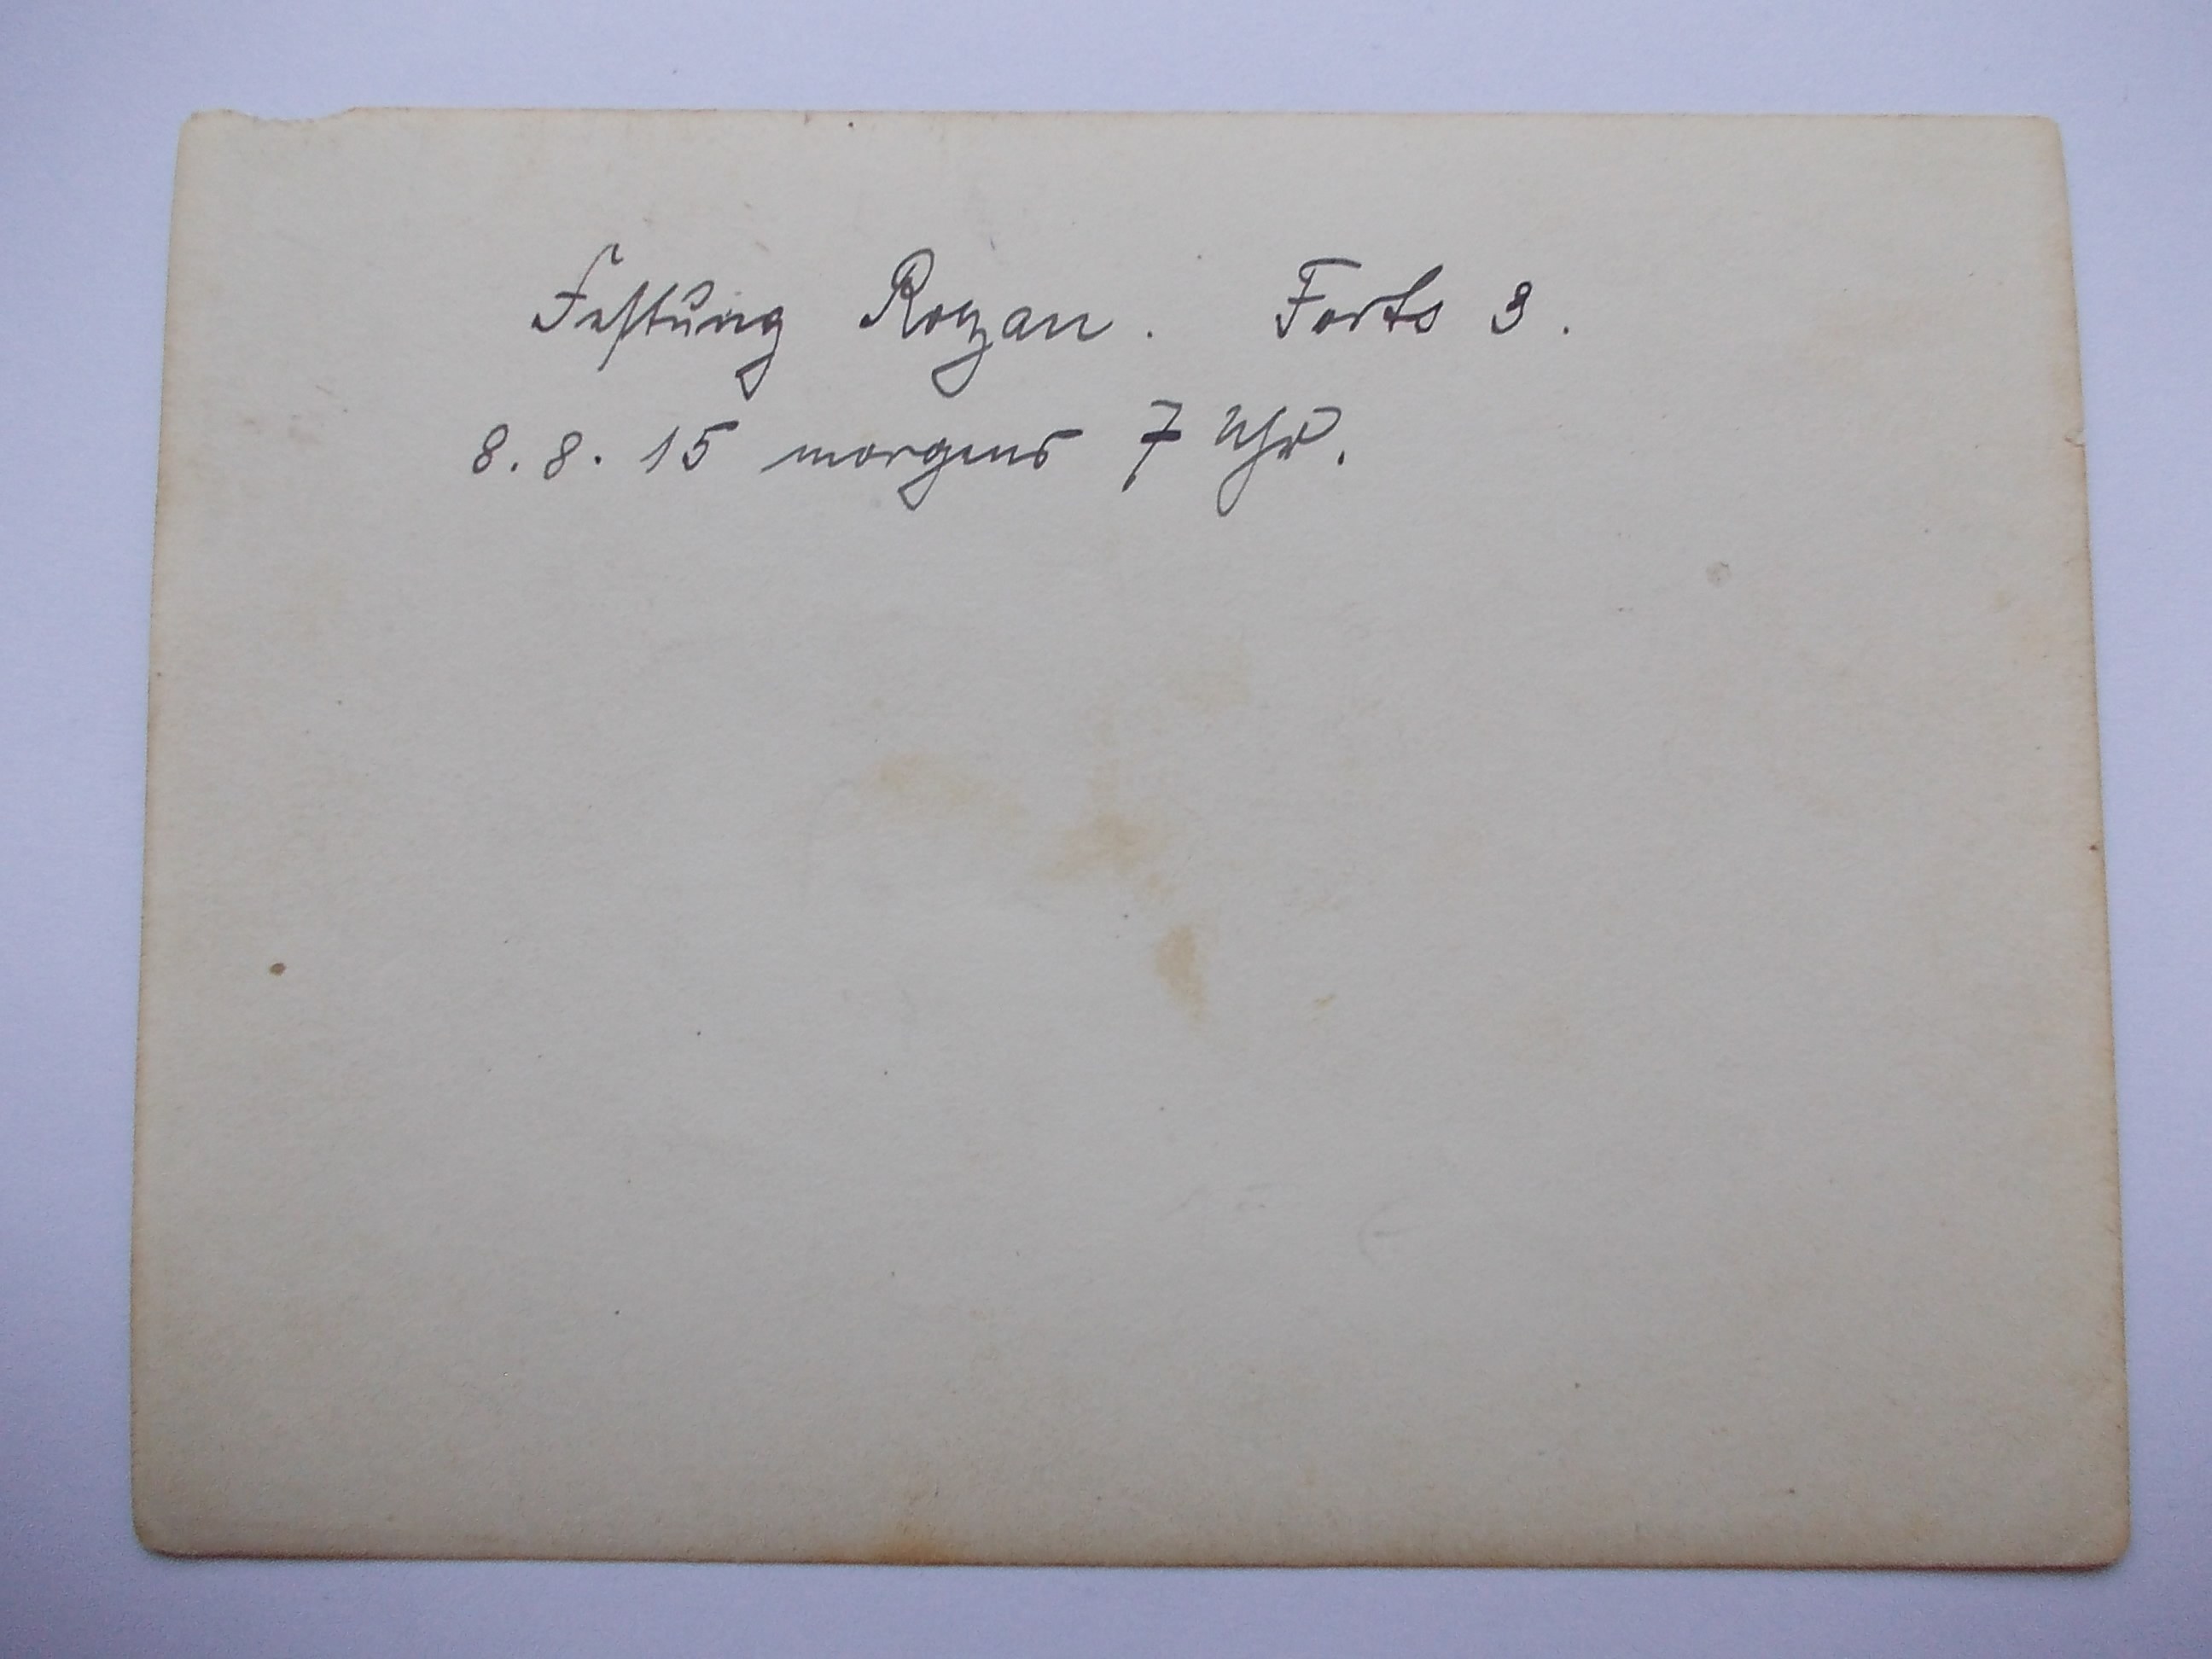 Festung Rozan. Forts 3.
8.8.15 morgens 7 Uhr.